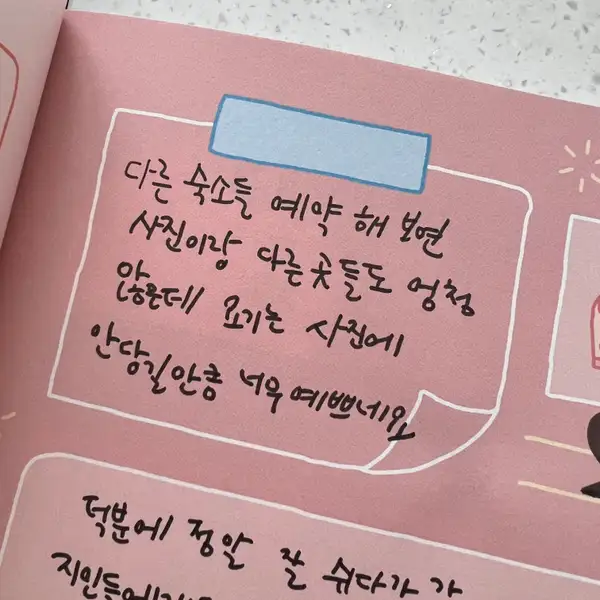 다른 숙소들 예약 해 보면
사진이랑 다른곳들도 엉청
않은데 요기는 사진에
안담길만큼 너무 예쁘네요
덕분에 정말 잘 쉬다가 가
지인들에게